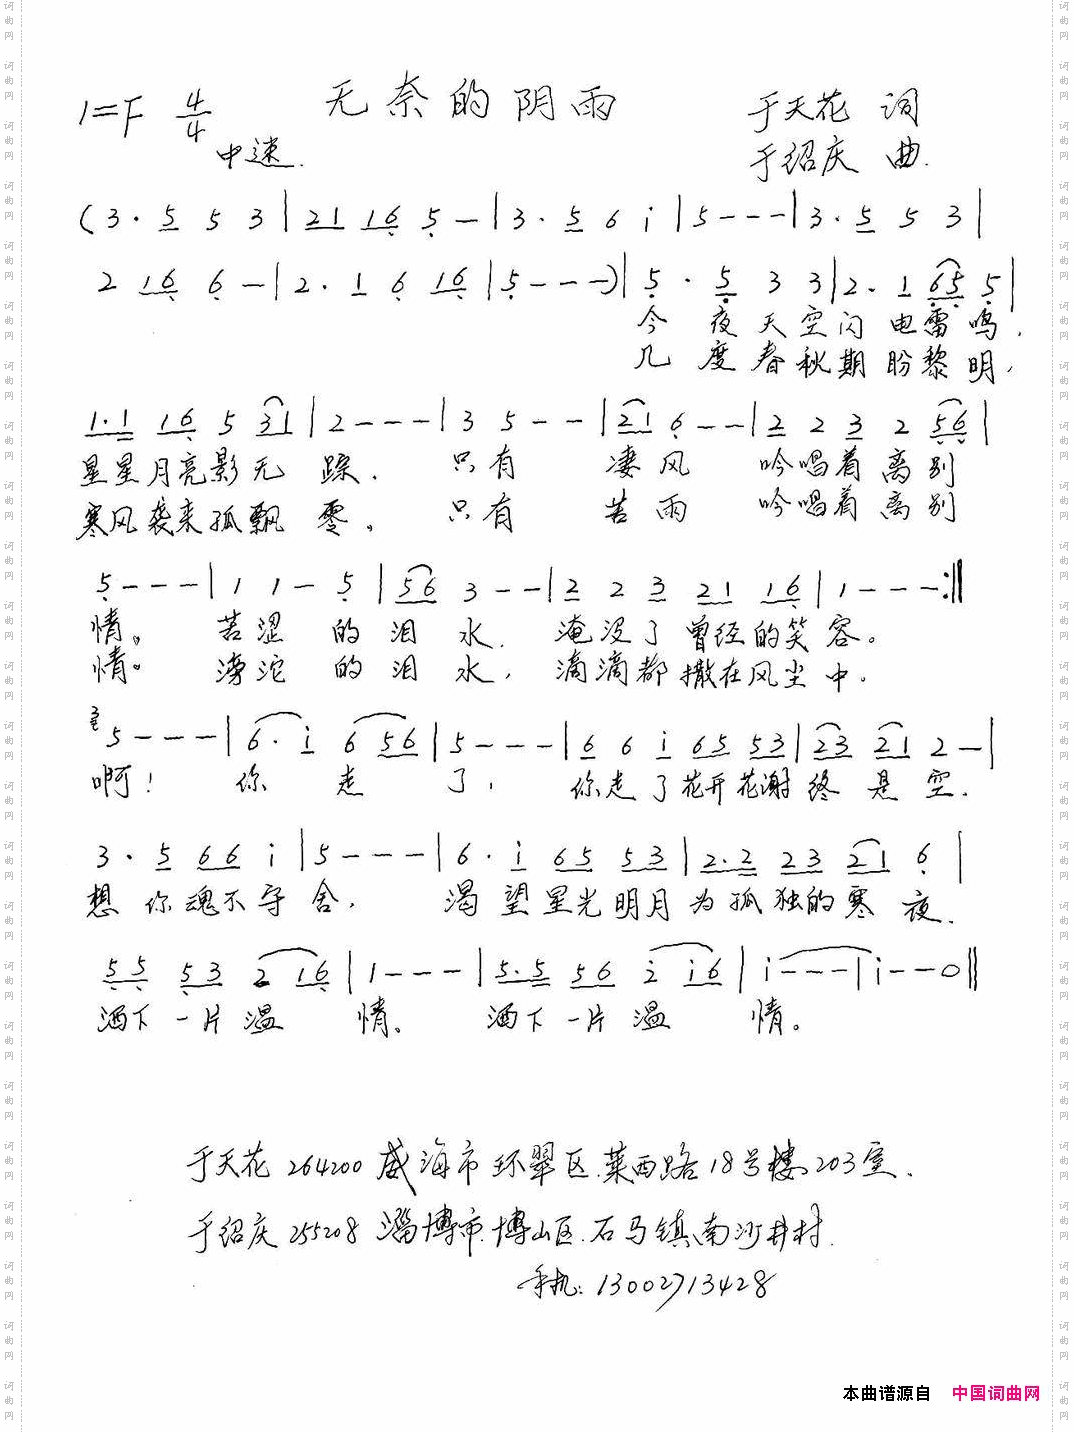 无奈的阴雨
1=F 4/4 于天花 词
中速. 于绍庆 曲.
(3· 5 5 3 | 21 16 5 — | 3· 5 6 i | 5 - - - | 3· 5 5 3 |
2 16 6 — | 2· 1 6 16 | 5 - - - ) | 5 · 5 3 3 | 2· 1 65 5 |
今 夜 天 空 闪 电 雷 鸣,
几 度 春 秋 期 盼 黎 明,
1·1 16 5 31 | 2 - - - | 3 5 - - | 21 6 - - | 2 2 3 2 56 |
星星月亮影无 踪. 只有 凄风 吟唱着离别
寒风袭来孤飘 零。 只有 苦雨 吟唱着离别
5 - - - | 1 1 — 5 | 56 3 - - | 2 2 3 21 16 | 1 - - - :‖
情。 苦涩 的泪水. 淹没了曾经的笑容。
情。 滂沱 的泪水, 滴滴都撒在风尘中.
3 5 - - - | 6· i 6 56 | 5 - - - | 6 6 i 65 53 | 23 21 2 — |
啊! 你 走 了, 你走了花开花谢终是空.
3· 5 66 i | 5 - - - | 6· i 65 53 | 2·2 23 21 6 |
想 你魂不守 舍, 渴望星光明月为孤独的寒夜.
55 53 2 16 | 1 - - - | 5·5 56 2 i6 | i - - - | i - - 0 ‖
洒下一片温 情。 洒下一片温 情。
于天花 264200 威海市环翠区.莱西路18号楼203室.
于绍庆 255208 淄博市.博山区.石马镇南沙井村.
手机: 13002713428
本曲谱源自 中国词曲网
词曲网